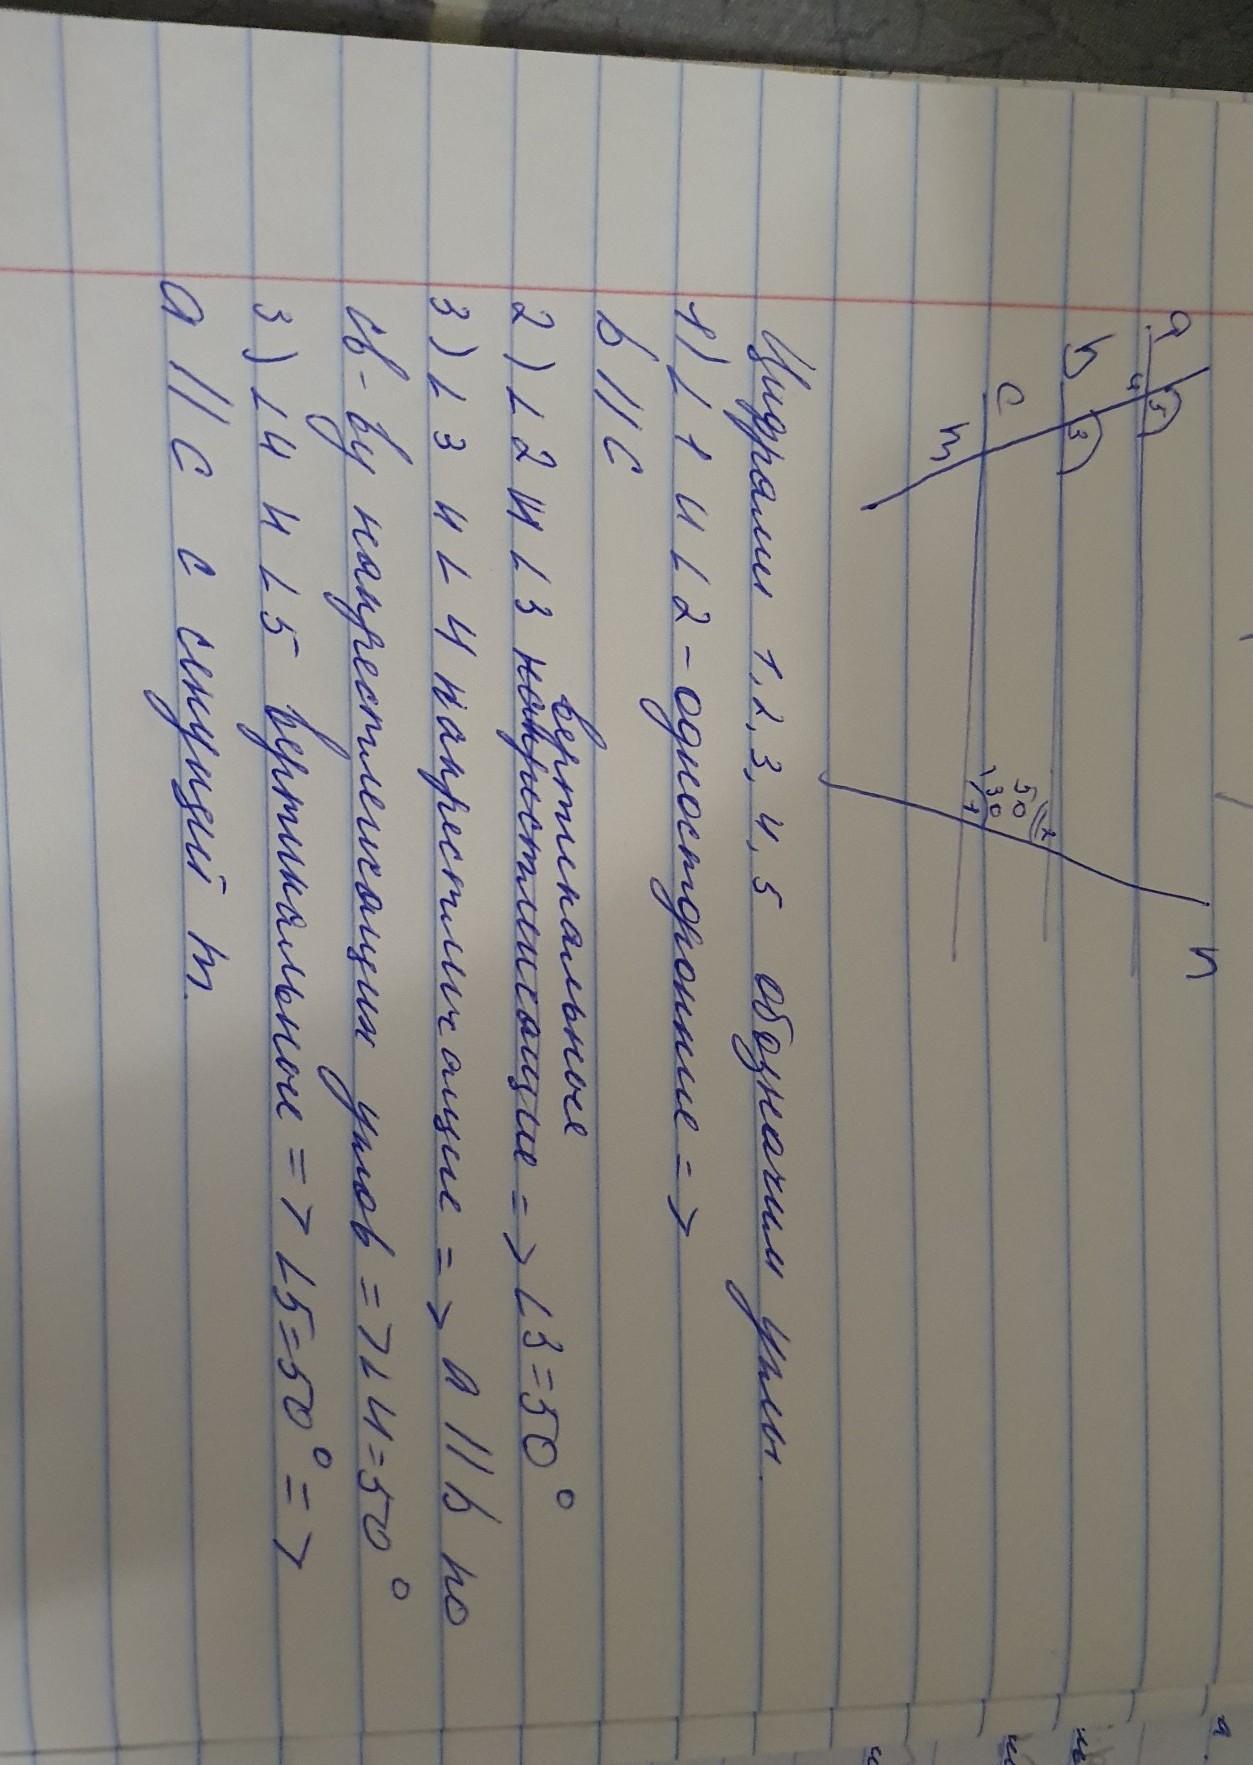 a
n
5
4
b
3
2
50
c
130
1
m
Цифрами 1,2,3,4,5 обозначим углы.
1) ∠1 и ∠2 - односторонние =>
b || c
вертикальные
2) ∠2 и ∠3 => ∠3=50°
3) ∠3 и ∠4 накрестлежащие => a || b по
св-ву накрестлежащих углов => ∠4=50°
3) ∠4 и ∠5 вертикальные => ∠5=50° =>
a || c с секущей m.